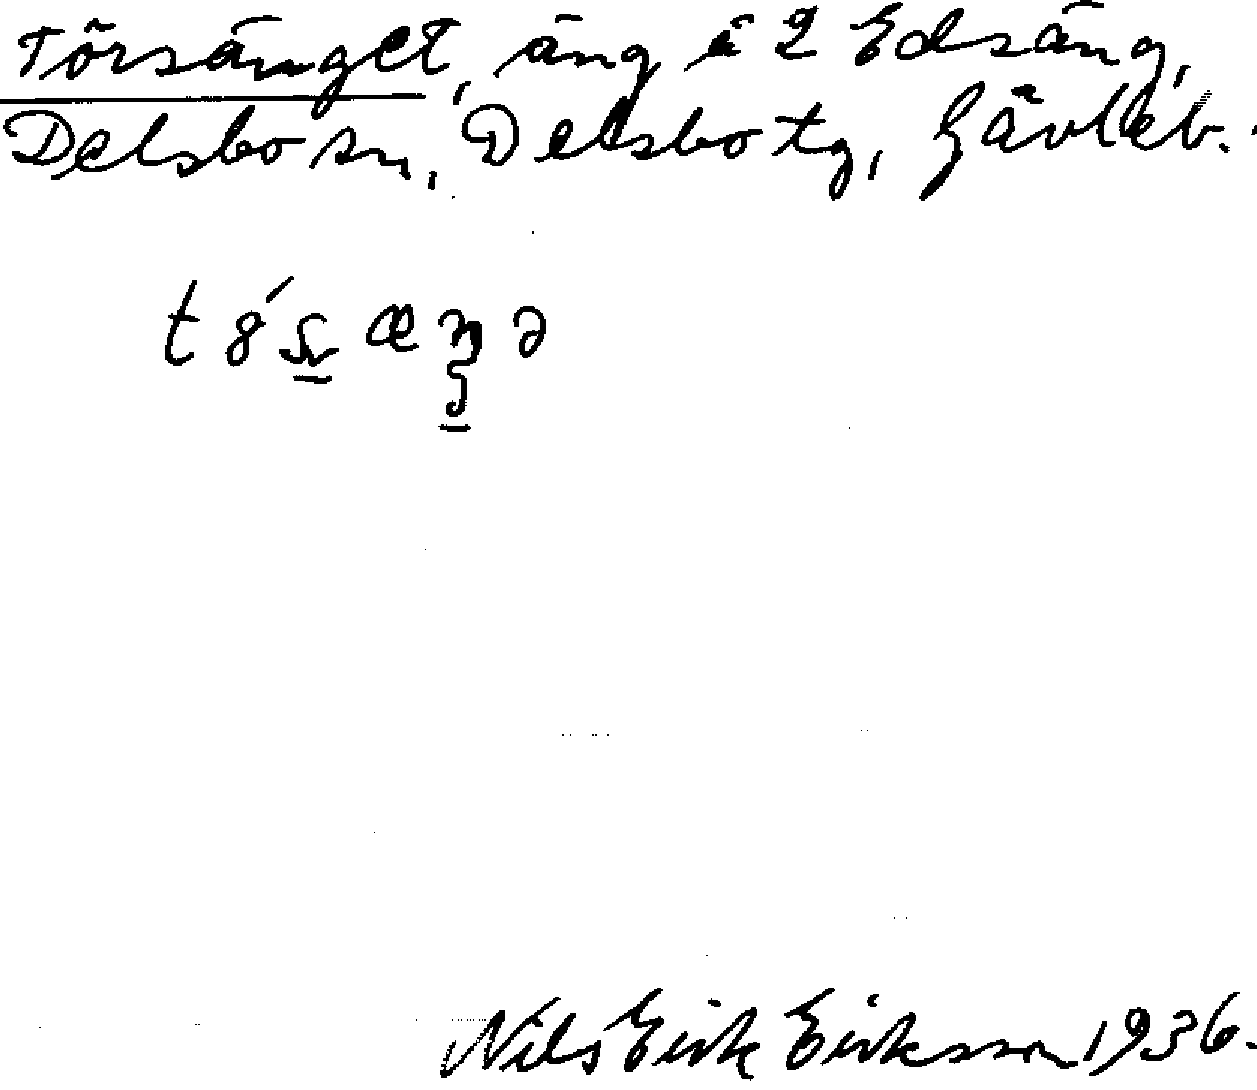 Törsänget, äng i 2 Edsäng,
Delsbo sn, Delsbo tg, Gävleb.
Nils Erik Eriksson 1936.